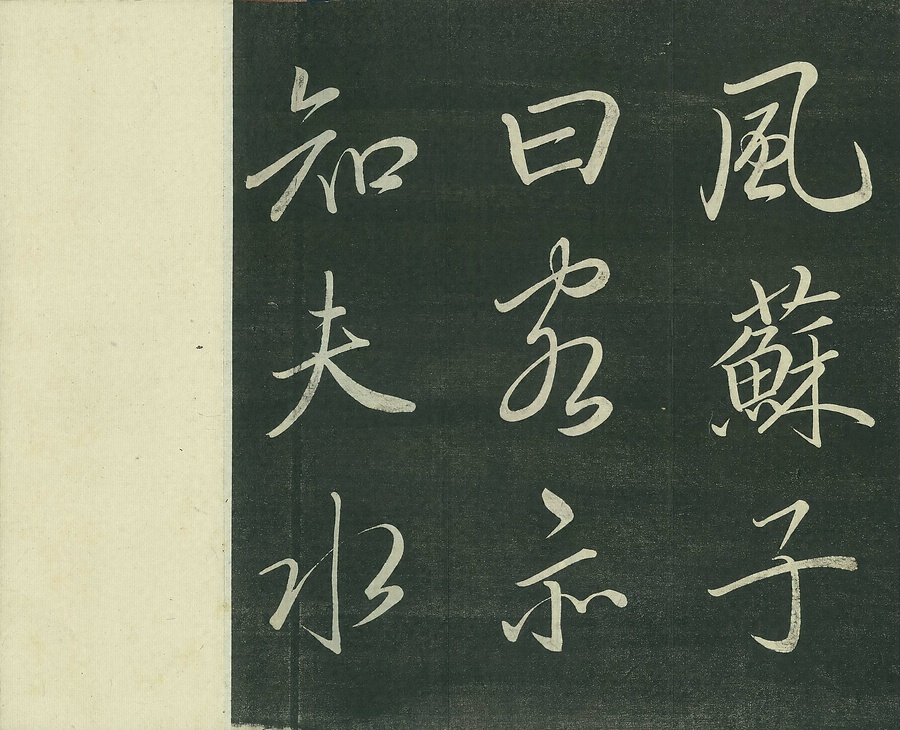 風蘇子
曰客亦
知夫水